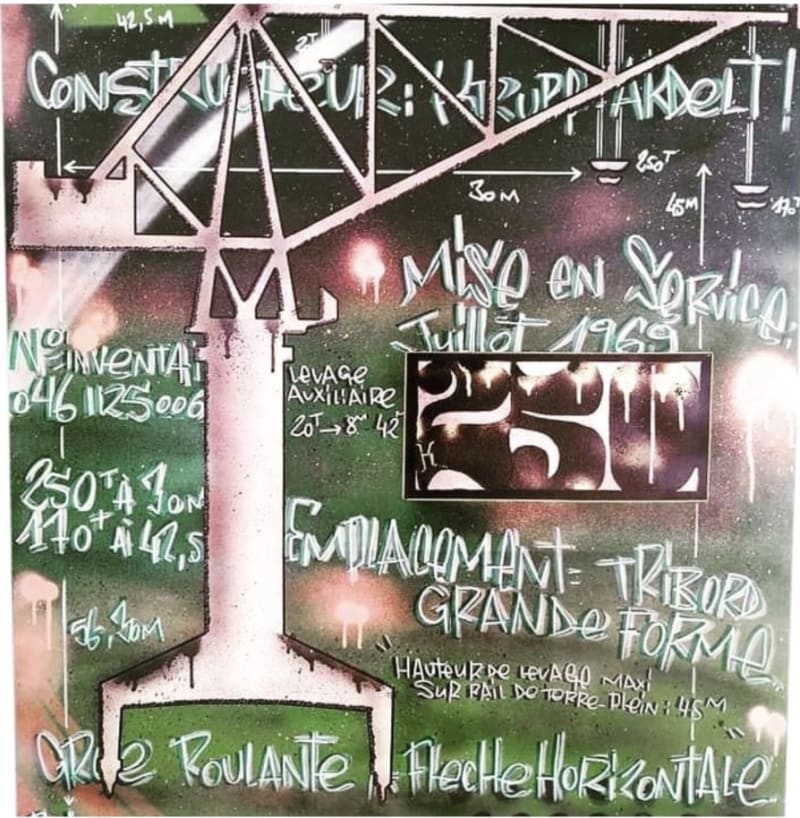 42,5M
2T
CONSTRUCTEUR: KRUPP ARDELT!
250T
30M
45M
170T
Mise en Service:
Juillet 1969
N° INVENTAI
046 1125006
LEVAGE
AUXILIAIRE
20T → 8M 42
250
250T À 30M
170T Ai 42,5
EMPLACEMENT: TRIBORD
GRANDE FORME
56,30M
HAUTEUR DE LEVAGE MAXi
SUR RAIL DE TERRE-PLEIN: 45M
GRUE ROULANTE: FLECHE HORIZONTALE